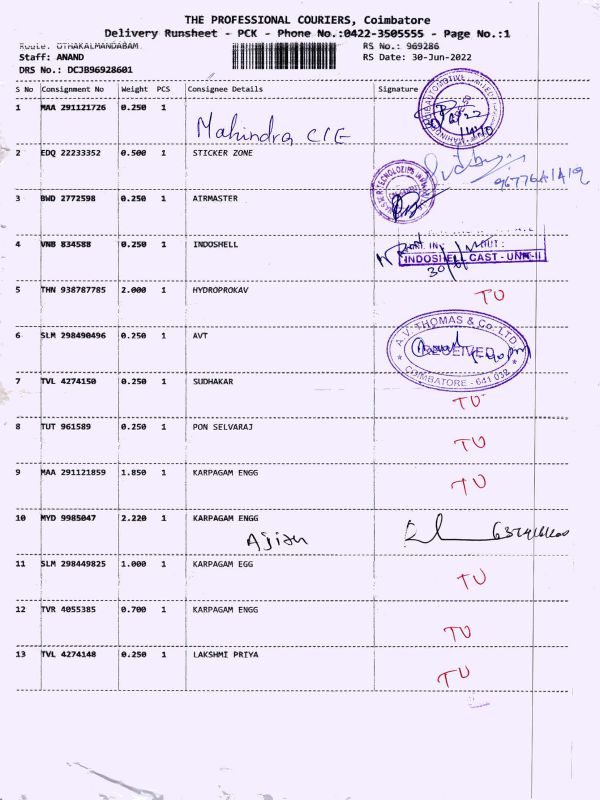 THE PROFESSIONAL COURIERS, Coimbatore
Delivery Runsheet - PCK - Phone No.:0422-3505555 - Page No.:1
Route: OTHAKALMANDABAM RS No.: 969286
Staff: ANAND RS Date: 30-Jun-2022
DRS No.: DCJB96928601
S No Consignment No Weight PCS Consignee Details Signature
1 MAA 291121726 0.250 1
Mahindra CIE
2 EDQ 22233352 0.500 1 STICKER ZONE
3 BWD 2772598 0.250 1 AIRMASTER
4 VNB 834588 0.250 1 INDOSHELL
INDOSHELL CAST - UNIT-II
5 THN 938787785 2.000 1 HYDROPROKAV TU
6 SLM 298490496 0.250 1 AVT
A.V. THOMAS & Co. LTD
RECEIVED
COIMBATORE - 641 032
7 TVL 4274150 0.250 1 SUDHAKAR
TU
8 TUT 961589 0.250 1 PON SELVARAJ
TU
9 MAA 291121859 1.850 1 KARPAGAM ENGG
TU
10 MYD 9985047 2.220 1 KARPAGAM ENGG
11 SLM 298449825 1.000 1 KARPAGAM EGG
TU
12 TVR 4055385 0.700 1 KARPAGAM ENGG
TU
13 TVL 4274148 0.250 1 LAKSHMI PRIYA
TU